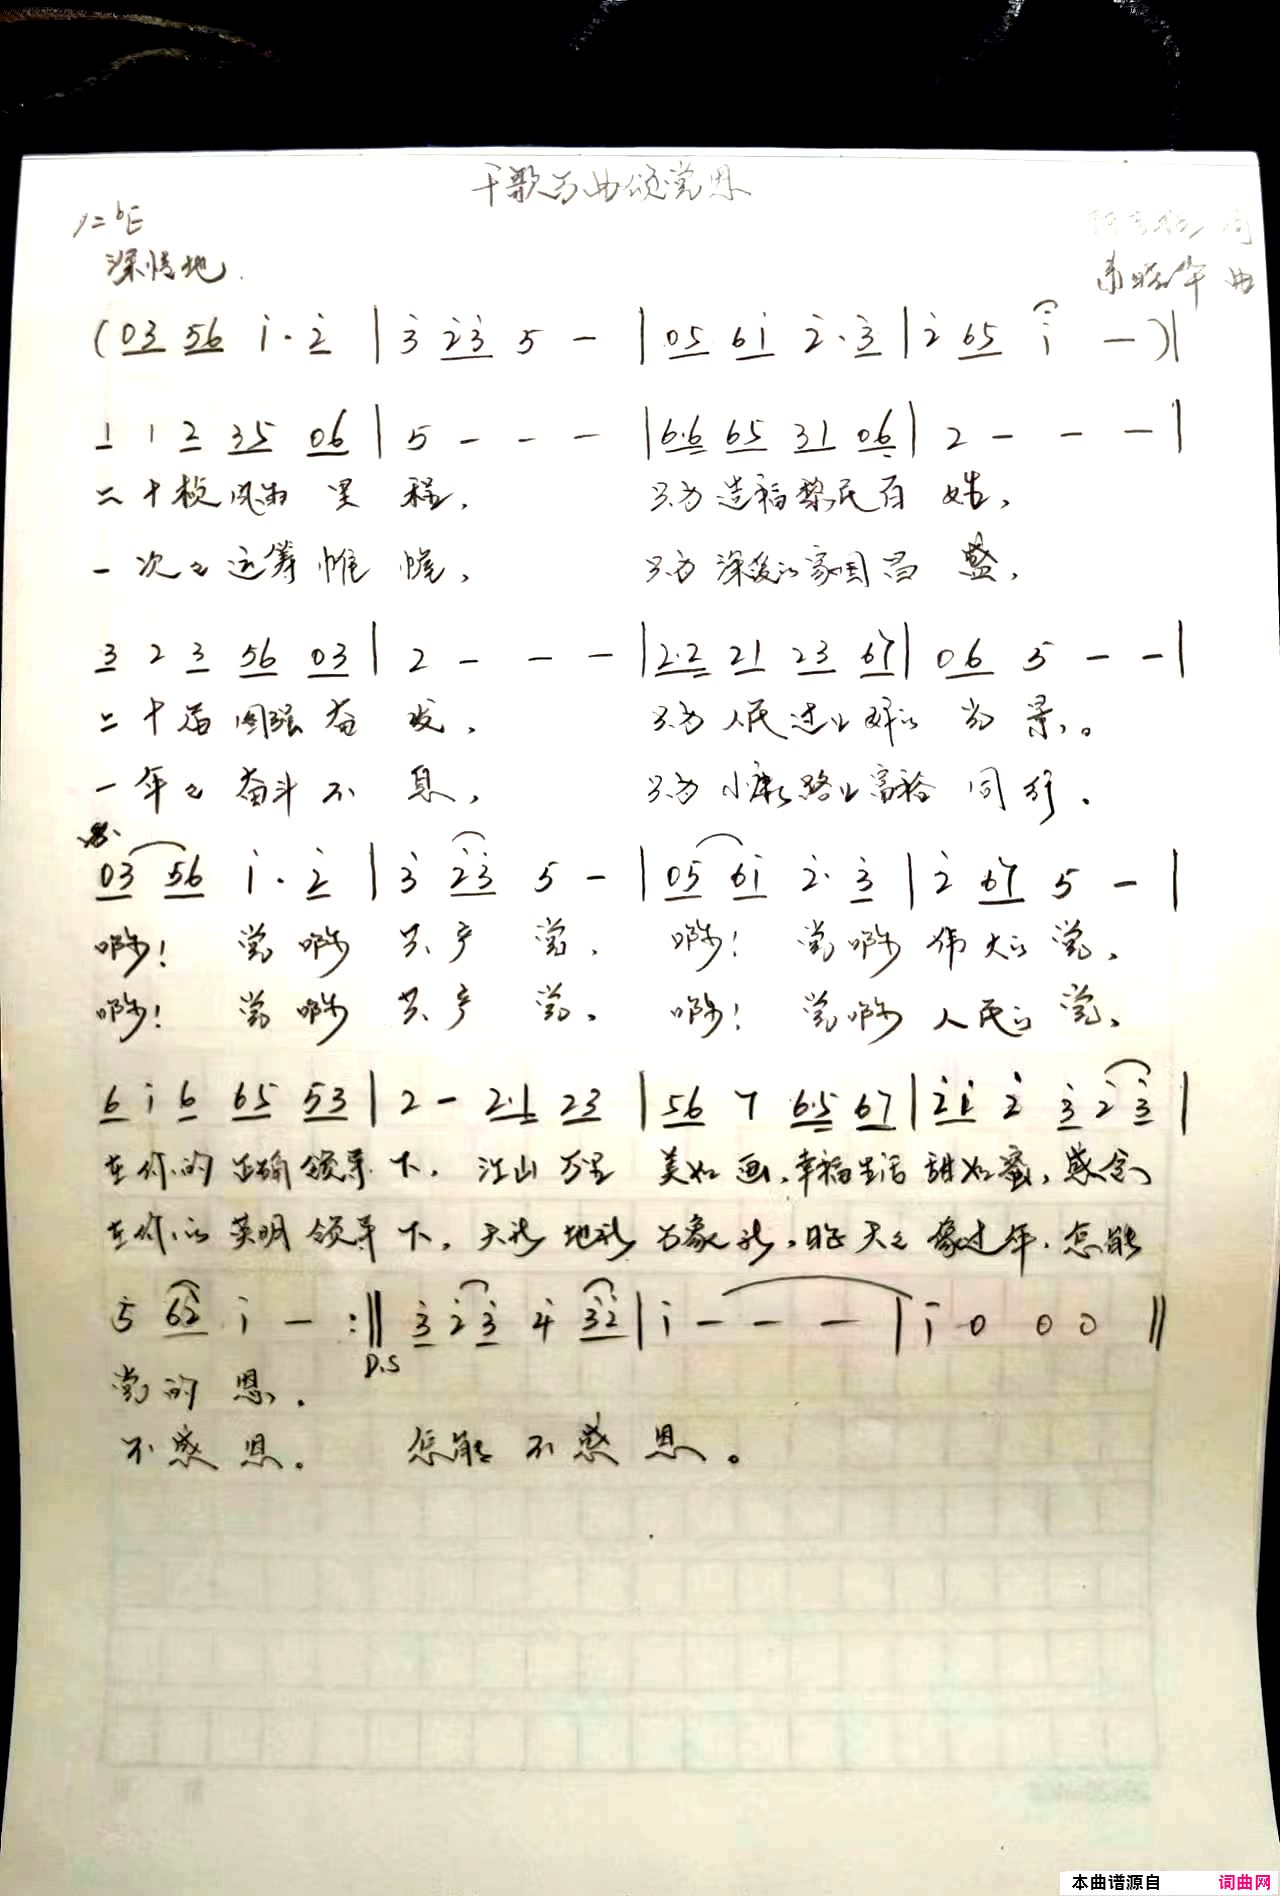 千歌万曲颂党恩
1=bE
深情地
词
曲
(03 56 i·2̇ | 3̇ 2̇3̇ 5 - | 05 6i 2̇·3̇ | 2̇ 65 i - )|
1 1 2 35 06 | 5 - - - | 6·6 65 31 06 | 2 - - - |
二十桢风雨 里 程, 只为造福黎民百 姓,
一次次运筹帷 幄, 只为深爱的家国昌 盛,
3 2 3 56 03 | 2 - - - | 2·2 21 23 67 | 06 5 - - |
二十届图强奋 发, 只为人民过上好的 光 景。
一年年奋斗不 息, 只为小康路上富裕 同 行.
03 56 i·2̇ | 3̇ 2̇3̇ 5 - | 05 6i 2̇·3̇ | 2̇ 67 5 - |
啊! 党 啊 共 产 党, 啊! 党 啊 伟大的 党,
啊! 党 啊 共 产 党, 啊! 党 啊 人民的 党,
6 i 6 65 53 | 2 - 2·1 23 | 56 7 6·5 67 | 2̇i 2̇ 3̇ 2̇ 3̇ |
在你的正确领导下, 江山 万里 美如画,幸福生活 甜如蜜, 感念
在你的英明领导下, 天新 地新 万象新, 天天像过年, 怎能
5 62̇ i - :‖ 3̇ 2̇ 3̇ 4̇ 3̇2̇ | i - - - | i 0 0 0 ‖
D.S
党的 恩.
不感 恩. 怎能 不感 恩。
本曲谱源自 词曲网